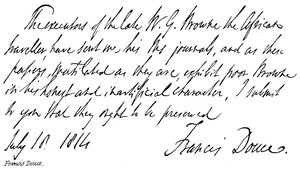 The executors of the late W. G. Browne the African
traveller have sent me his journals, and as these
papers, mutilated as they are, exhibit poor Browne
in his honest and inartificial character, I submit
to you that they ought to be preserved
July 10. 1814
Francis Douce.
Francis Douce.